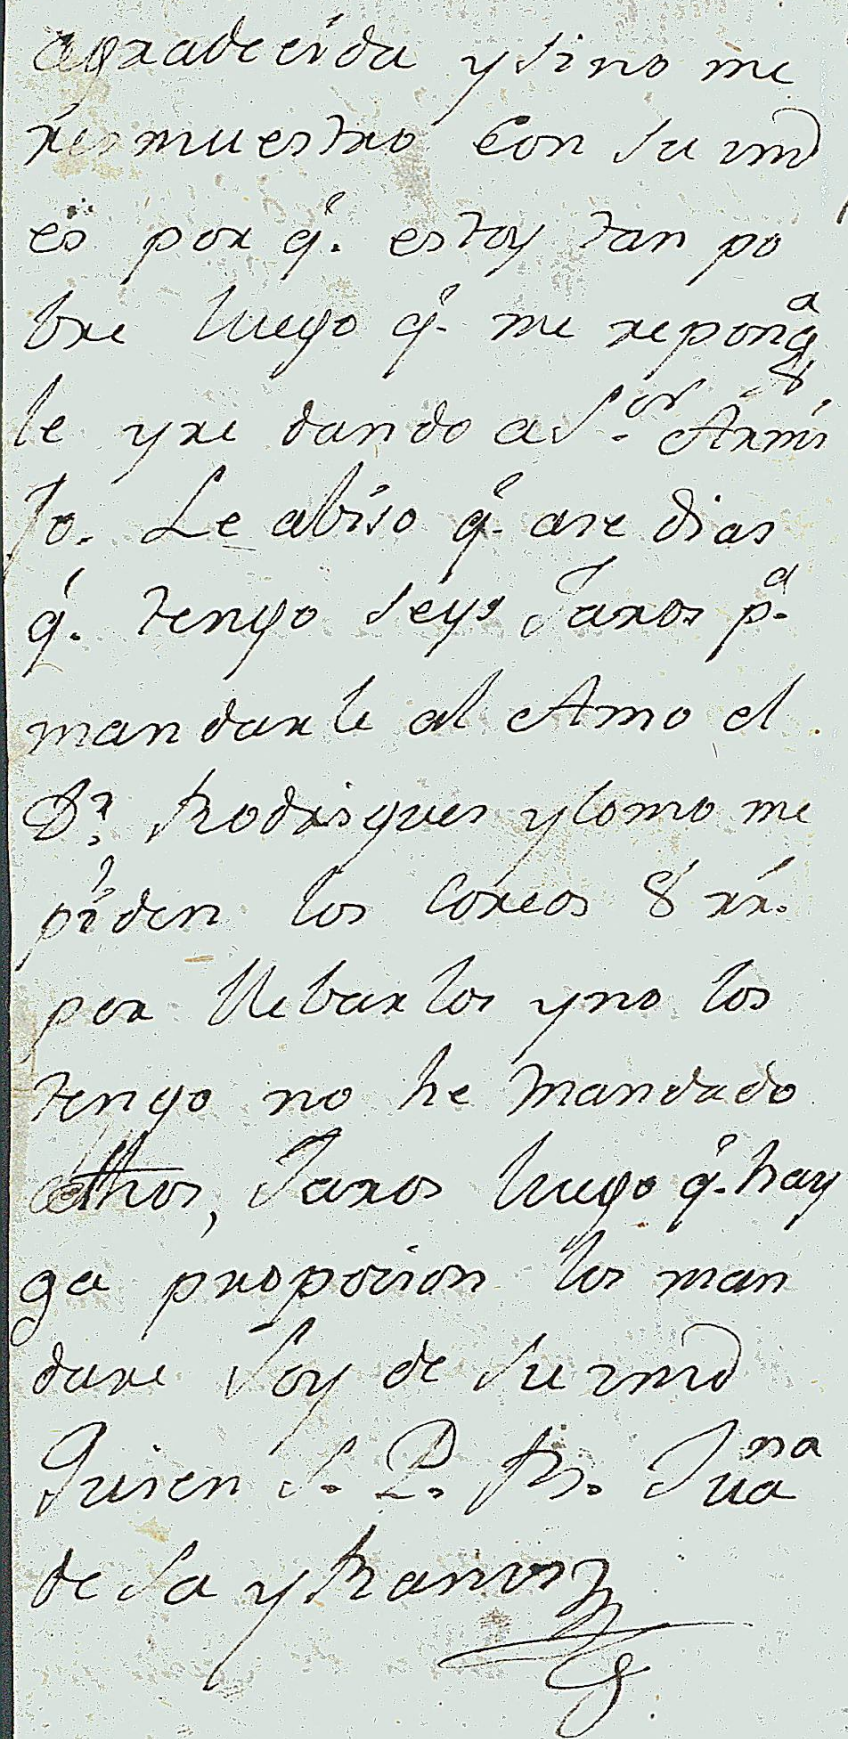 agradecida y sino me
demuestro con su md
es por q.e estoy tan po
bre luego q.e me repong.a
le yre dando a S.or Armi
Jo. Le abiso q.e ase dias
q.e tengo seys Jaros p.a
mandarle al Amo el
D.r Rodrigues y como me
piden los Coreos 8 rr.
por llebarlos y no los
tengo no he mandado
dthos, Jaros luego q.e hay
ga proporcion los man
dare Soy de su md
Quien S. P. B. Juana
de Sa y Ramos